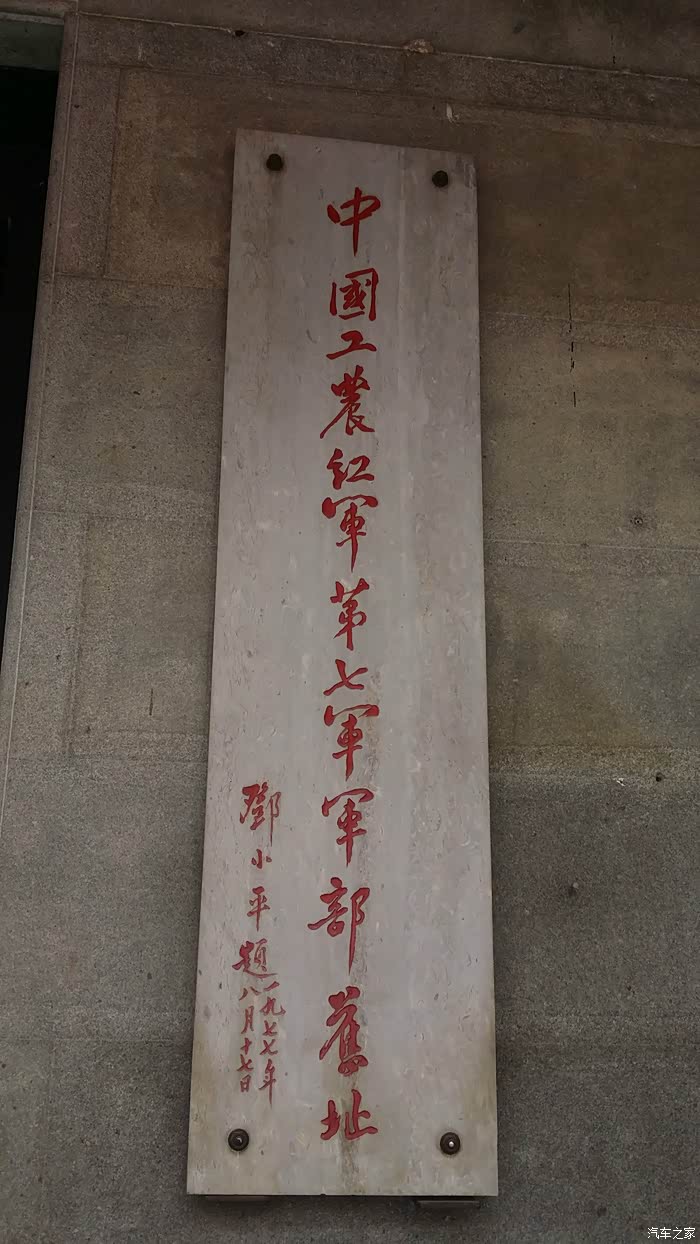 中國工農紅軍第七軍軍部舊址
鄧小平題
一九七七年
八月十七日
汽车之家